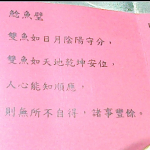 鯰魚壁
雙魚如日月陰陽守分,
雙魚如天地乾坤安位,
人心能知順應,
則無所不自得,諸事豐馀。